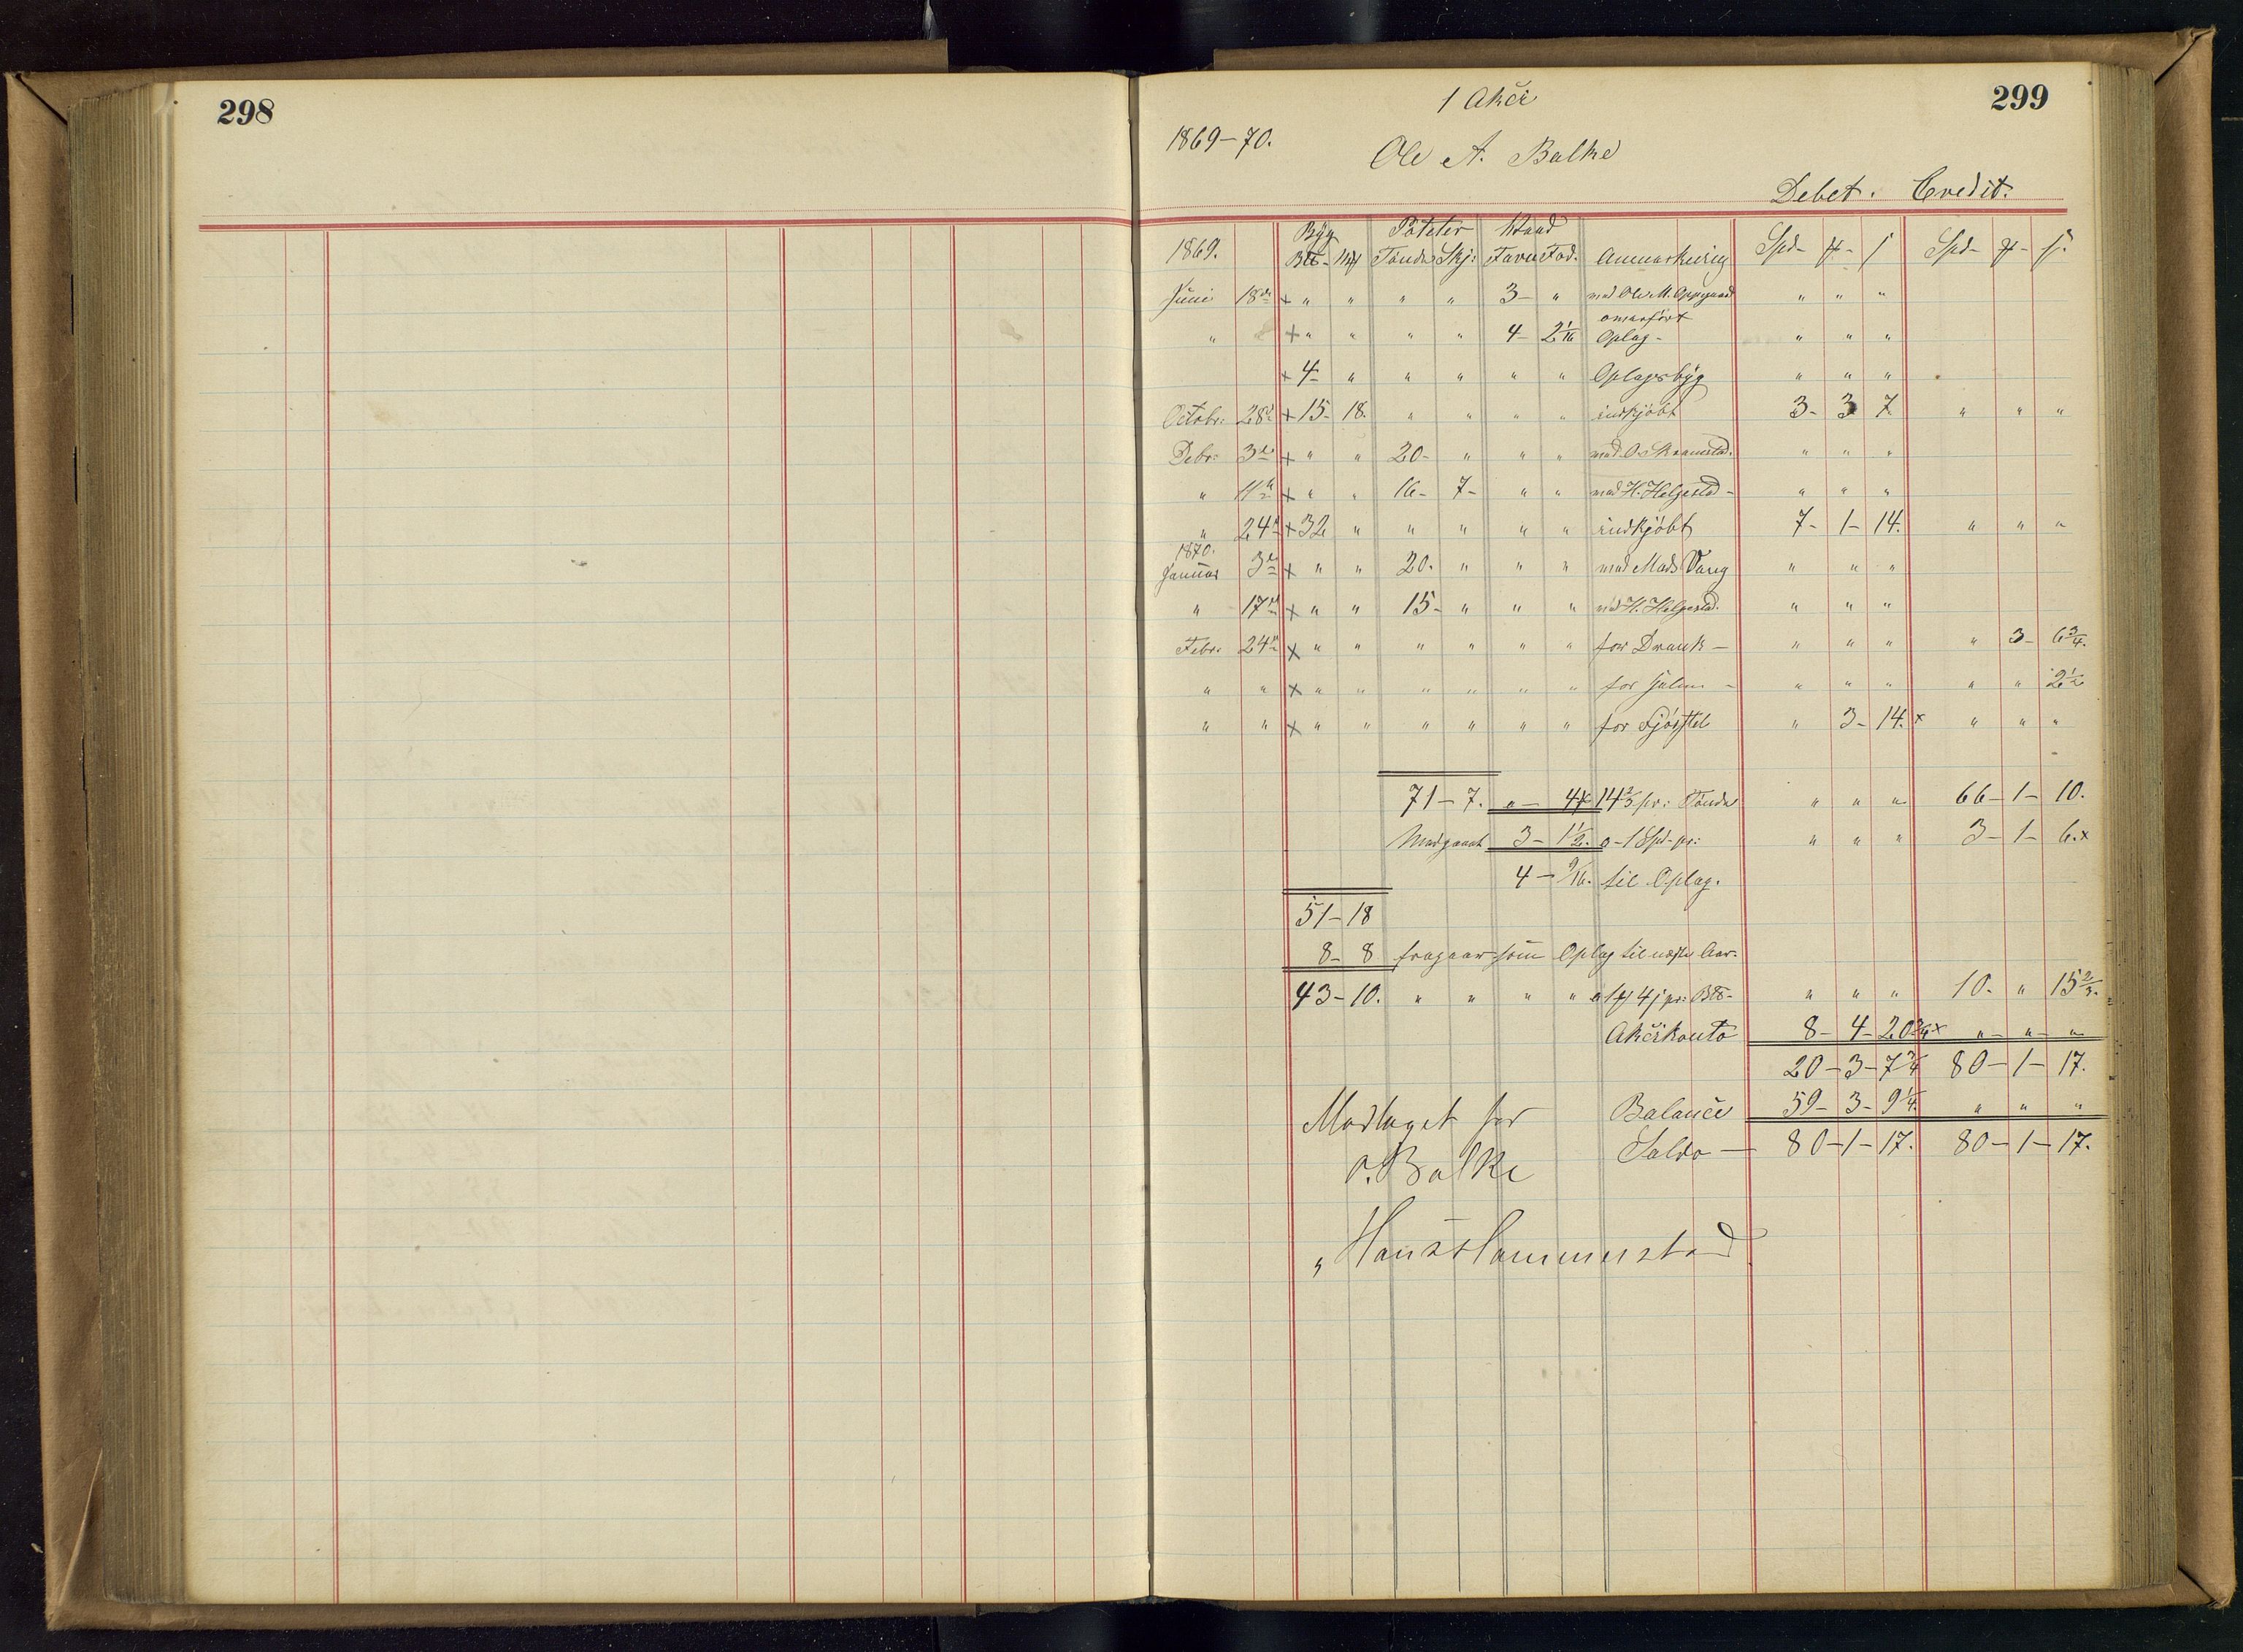 298
299
1 Akcie
1869-70.
Ole A. Balke
Debet. Credit.
Byg Poteter Ved
1869. Btt- Mk Tønder Skj: Favn Fod. Anmærkning Spd- ℔- ſ Spd- ℔- ſ.
Juni 18de × " " " " 3- " med Ole M. Oppegaard " " "
overført
" × " " " " 4- 2 1/16 Oplag- " " "
× 4- " " " " " Oplagsbyg " " "
Octobr: 28de × 15- 18. " " " " indkjøbt 3- 3 7 " " "
Debr: 3de × " " 20- " " " med O. Kramstad. " " "
" 11te × " " 16- 7- " " med H. Helgestad- " " "
" 24de × 32 " " " " " indkjøbt 7- 1- 14. " " "
1870.
Januar 3de × " " 20. " " " med Mads Vang " " "
" 17de × " " 15- " " " ved H. Helgestad. " " "
Febr: 24de × " " " " " " for Drank- " " " " 3- 6 3/4.
" " × " " " " " " for - " " " " " 2 1/2
" " × " " " " " " for " 3- 14. × " " "
71-7. a- 4 14 2/5 pr: Tønde " " " 66-1-10.
Medgaaet 3- 1 1/2. a-1 Spd- pr: " " " 3-1-6. ×
4- 9/16. til Oplag.
51-18
8-8 fragaar som Oplag til næste Aar-
43-10. " " " " a 1 ℔ 4 ſ pr: Btt- " " " 10. " 15 2/3.
Akciekonto 8-4-20 3/4 × "-"-"
20-3-7 3/4 80-1-17.
Balance 59-3-9 1/4. " " "
Saldo- 80-1-17. 80-1-17.
Modtaget for
O. Balke
"Hans Hammerstad